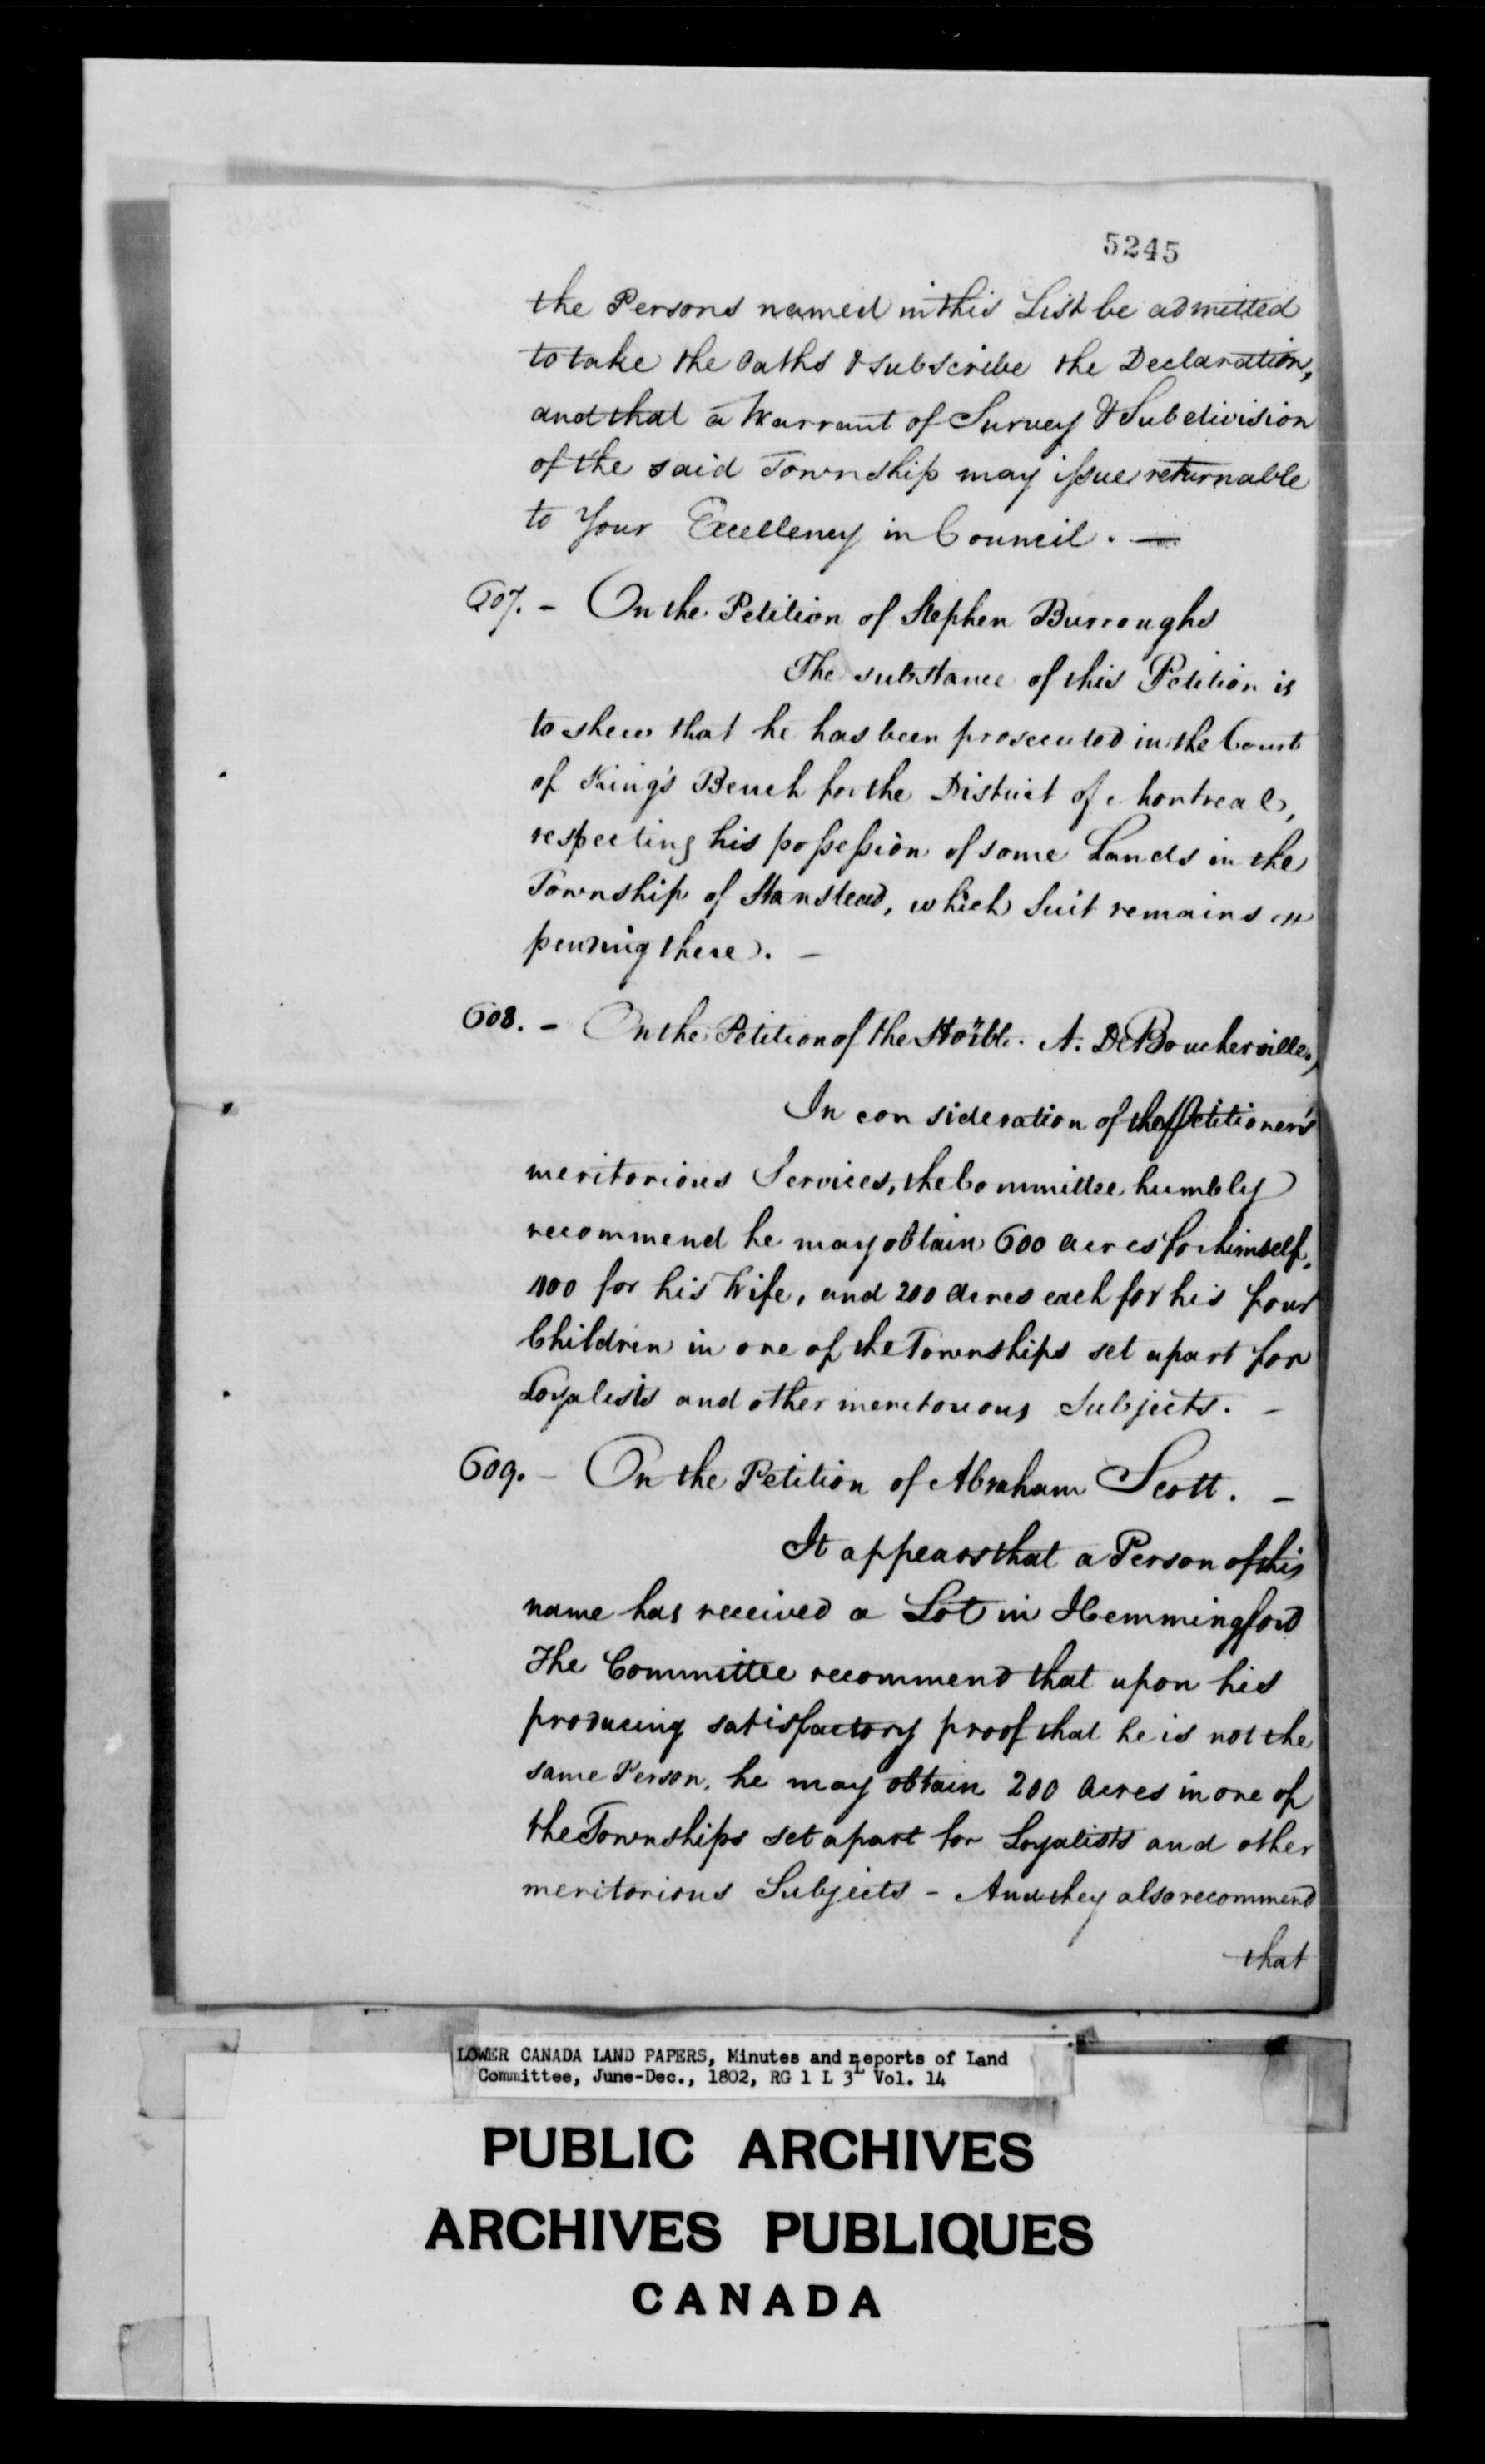 5245
the Persons named in this List be admitted
to take the Oaths & subscribe the Declaration,
and that a Warrant of Survey & Subdivision
of the said Township may issue returnable
to Your Excellency in Council. —
607. – On the Petition of Stephen Burroughs
The substance of this Petition is
to shew that he has been prosecuted in the Court
of King's Bench for the District of Montreal,
respecting his possession of some Lands in the
Township of Stanstead, which Suit remains
pending there. –
608. – On the Petition of the Honble. A. DeBoucherville,
In consideration of the Petitioner's
meritorious Services, the Committee humbly
recommend he may obtain 600 acres for himself,
for his Wife, and 200 acres each for his four
Children in one of the Townships set apart for
Loyalists and other meritorious Subjects. –
609. – On the Petition of Abraham Scott. –
It appears that a Person of this
name has received a Lot in Hemmingford
The Committee recommend that upon his
producing satisfactory proof that he is not the
same Person, he may obtain 200 Acres in one of
the Townships set apart for Loyalists and other
meritorious Subjects – And they also recommend
that
LOWER CANADA LAND PAPERS, Minutes and Reports of Land
Committee, June-Dec., 1802, RG 1 L 3L Vol. 14
PUBLIC ARCHIVES
ARCHIVES PUBLIQUES
CANADA